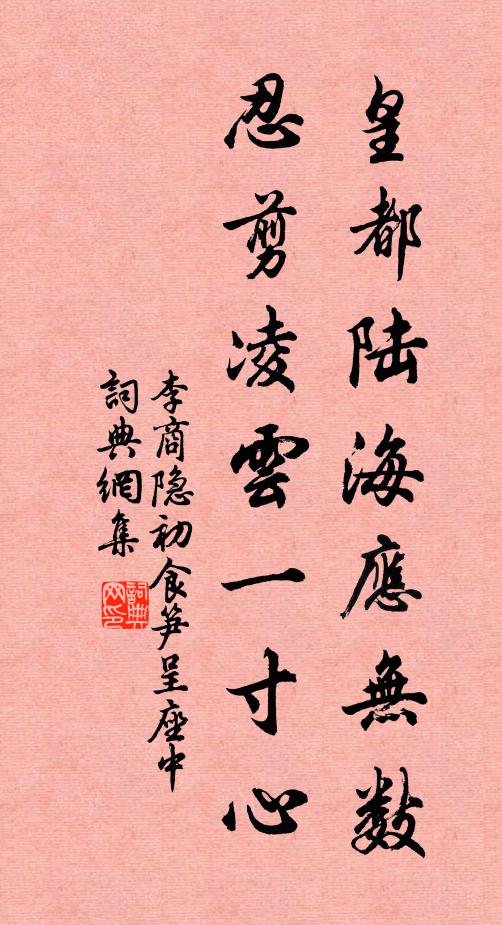 皇都陆海應無數
忍剪凌雲一寸心
李商隐初食笋呈座中
詞典網集
詞典网印